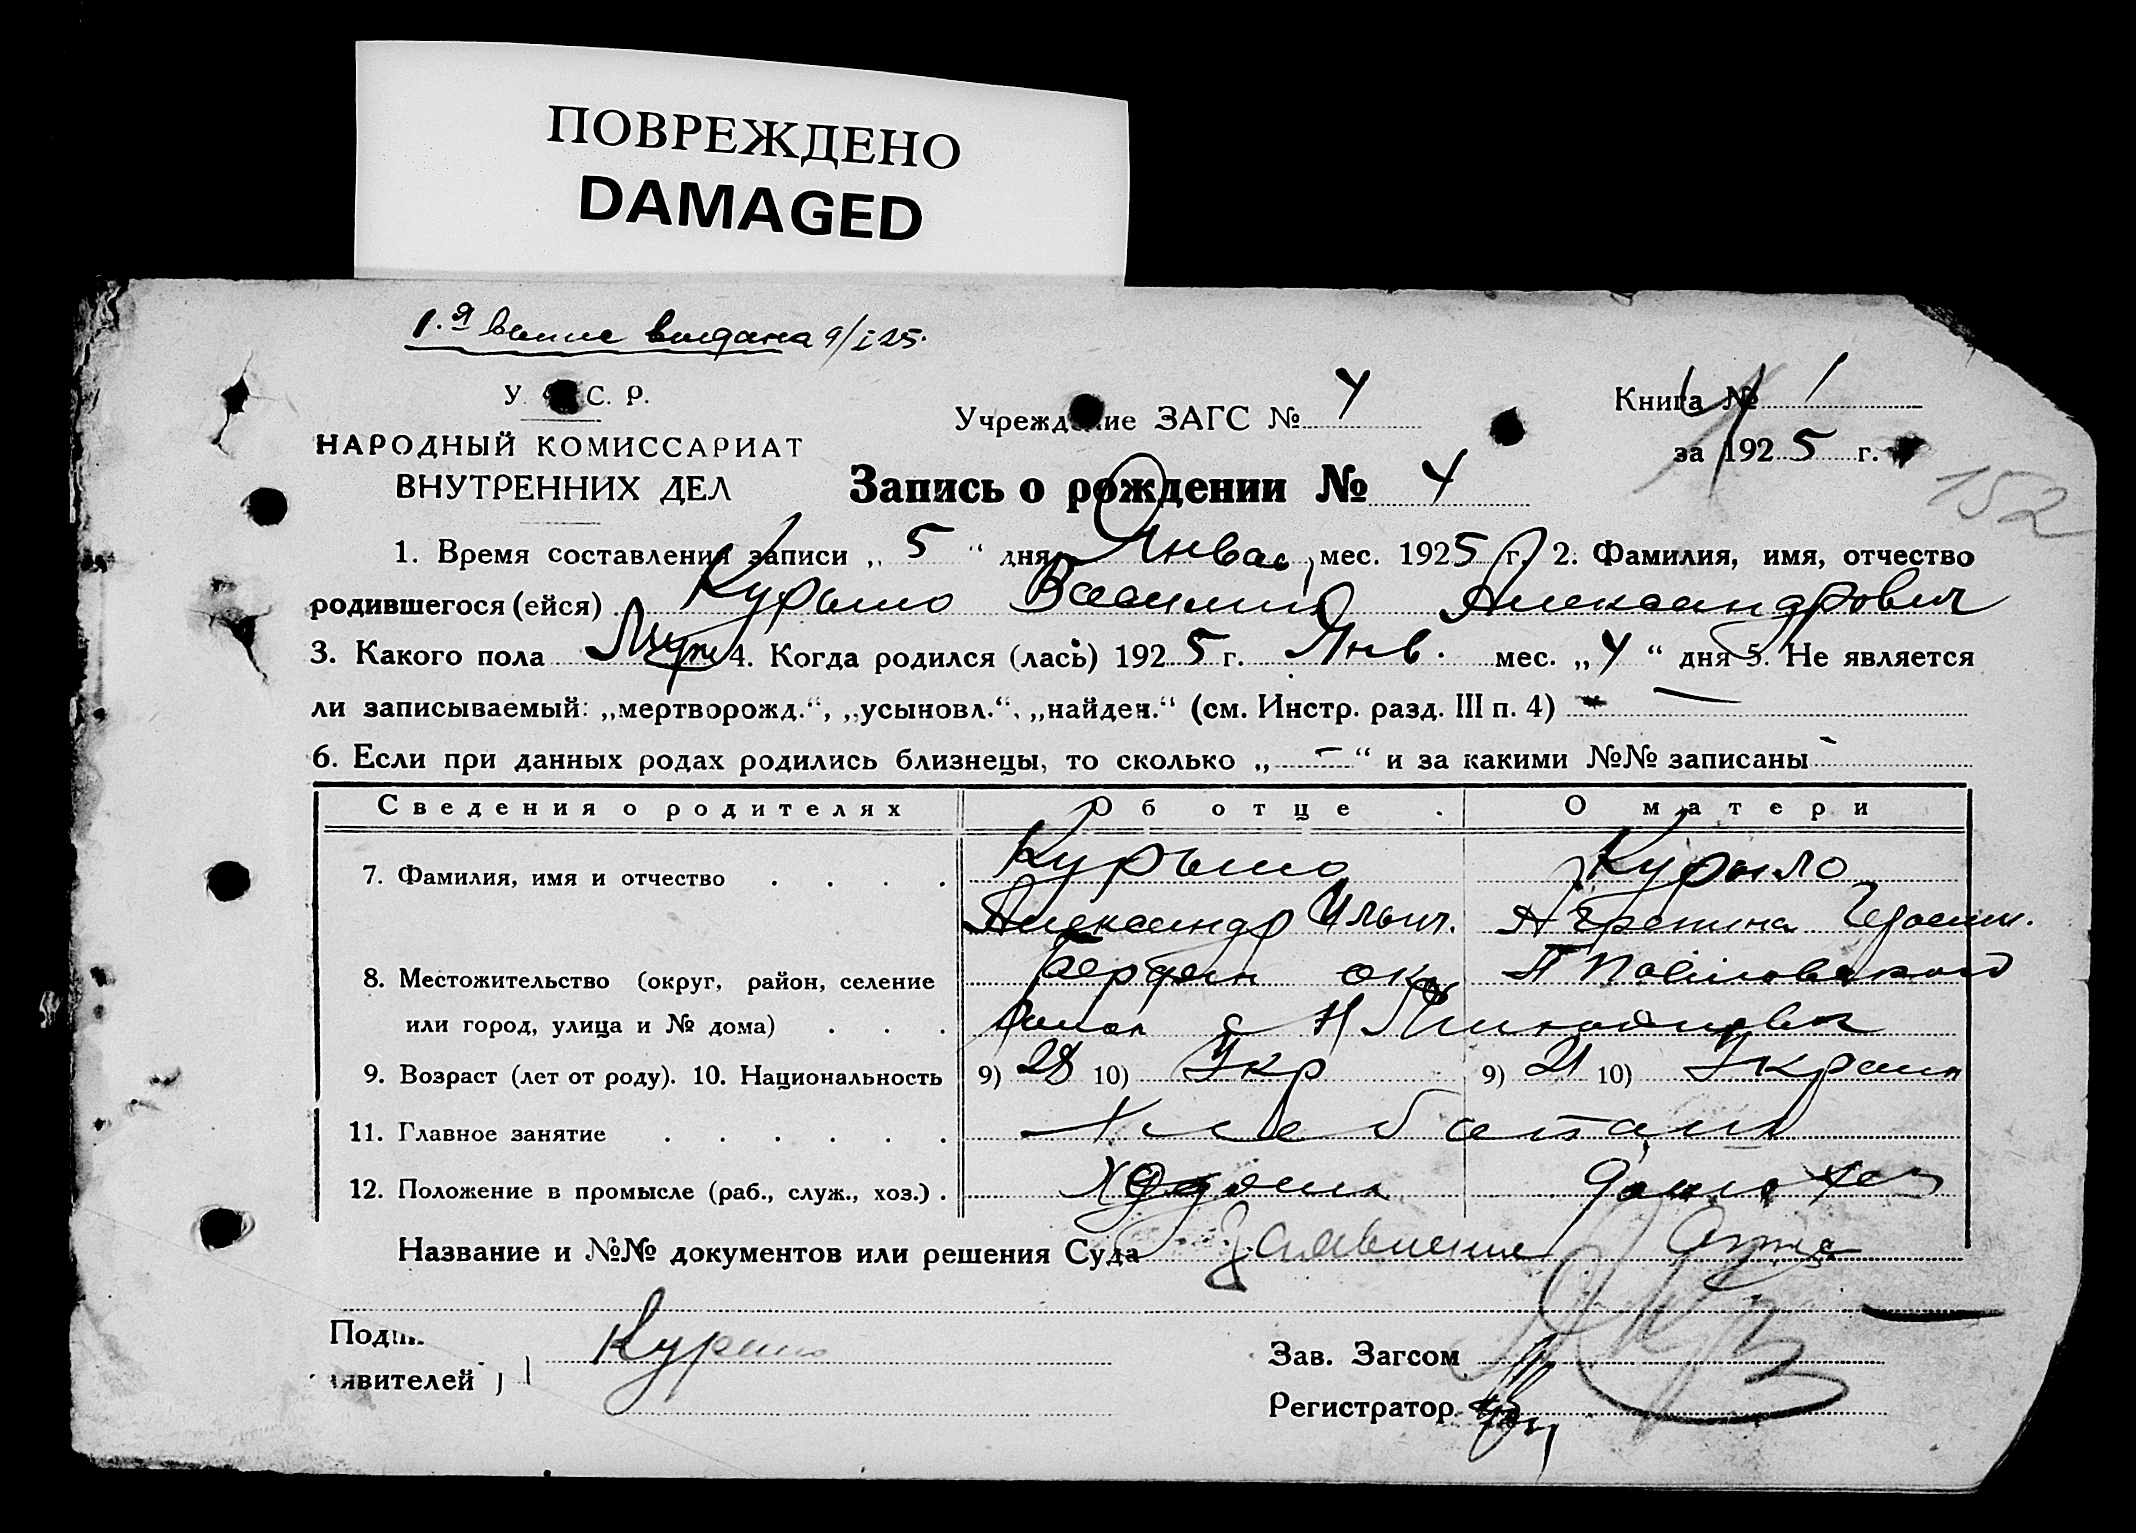 ПОВРЕЖДЕНО
DAMAGED
1.я выпис выдана 9/I 25.
У. С. С. Р.
НАРОДНЫЙ КОМИССАРИАТ
ВНУТРЕННИХ ДЕЛ
Учреждение ЗАГС № 4
Книга № 1
за 1925 г.
152
Запись о рождении № 4
1. Время составления записи „ 5 “ дня Января мес. 1925 г. 2. Фамилия, имя, отчество
родившегося (ейся) Курыло Василий Александрович
3. Какого пола Муж 4. Когда родился (лась) 1925 г. Янв. мес. „ 4 “ дня 5. Не является
ли записываемый: „мертворожд.“, „усыновл.“, „найден.“ (см. Инстр. разд. III п. 4) —
6. Если при данных родах родились близнецы, то сколько „ — “ и за какими №№ записаны -
Сведения о родителях Об отце О матери
7. Фамилия, имя и отчество Курыло Курыло
Александр Ильич. Агрепина Герасим.
8. Местожительство (округ, район, селение Бердян окр
или город, улица и № дома) район с Н
9. Возраст (лет от роду). 10. Национальность 9) 28 10) Укр 9) 21 10) Украин
11. Главное занятие Хлебопаш
12. Положение в промысле (раб., служ., хоз.) Хозяин домохоз
Название и №№ документов или решения Суда Заявление отца
Подп.
явителей Курыло
Зав. Загсом
Регистратор